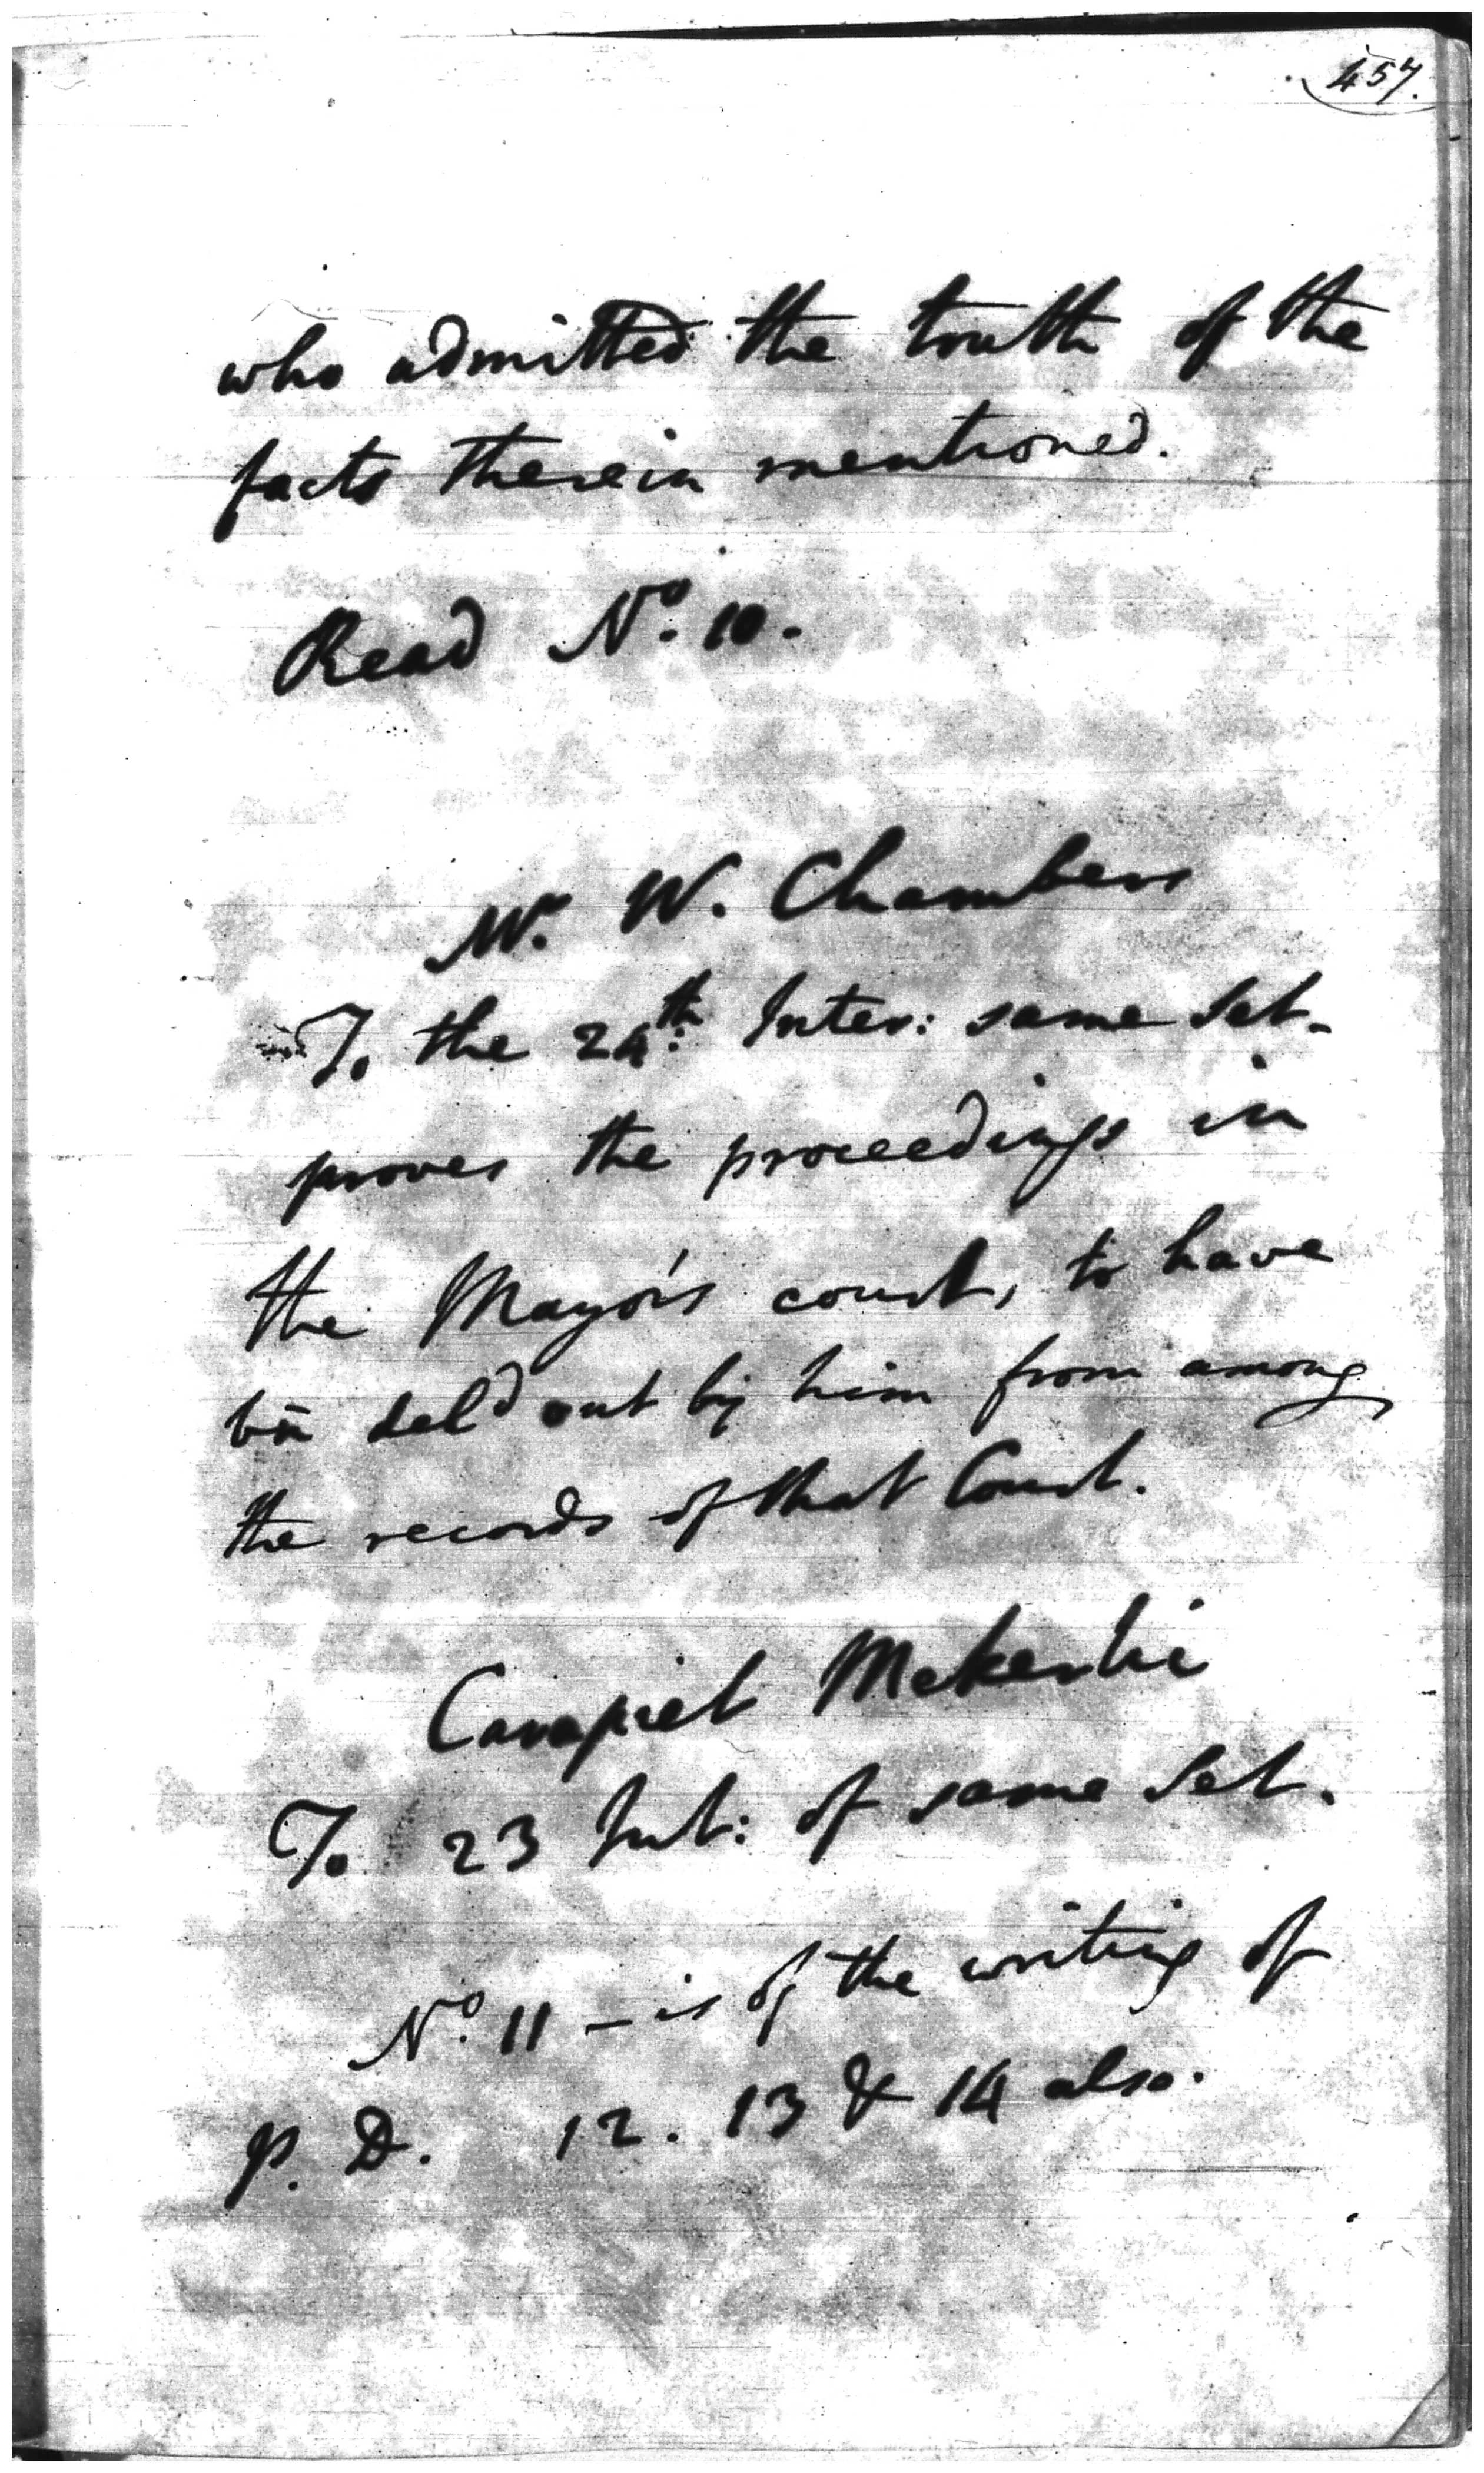 457.
who admitted the truth of the
facts therein mentioned.
Read No. 10.
Mr. W. Chambers
To the 24th: Inter: same Set.
proves the proceedings in
the Mayor's court, to have
bn deld out by him from among
the records of that Court.
Carapiet
To 23 Int: of same Set.
No. 11 - is of the writing of
P. D. 12. 13 & 14 also.